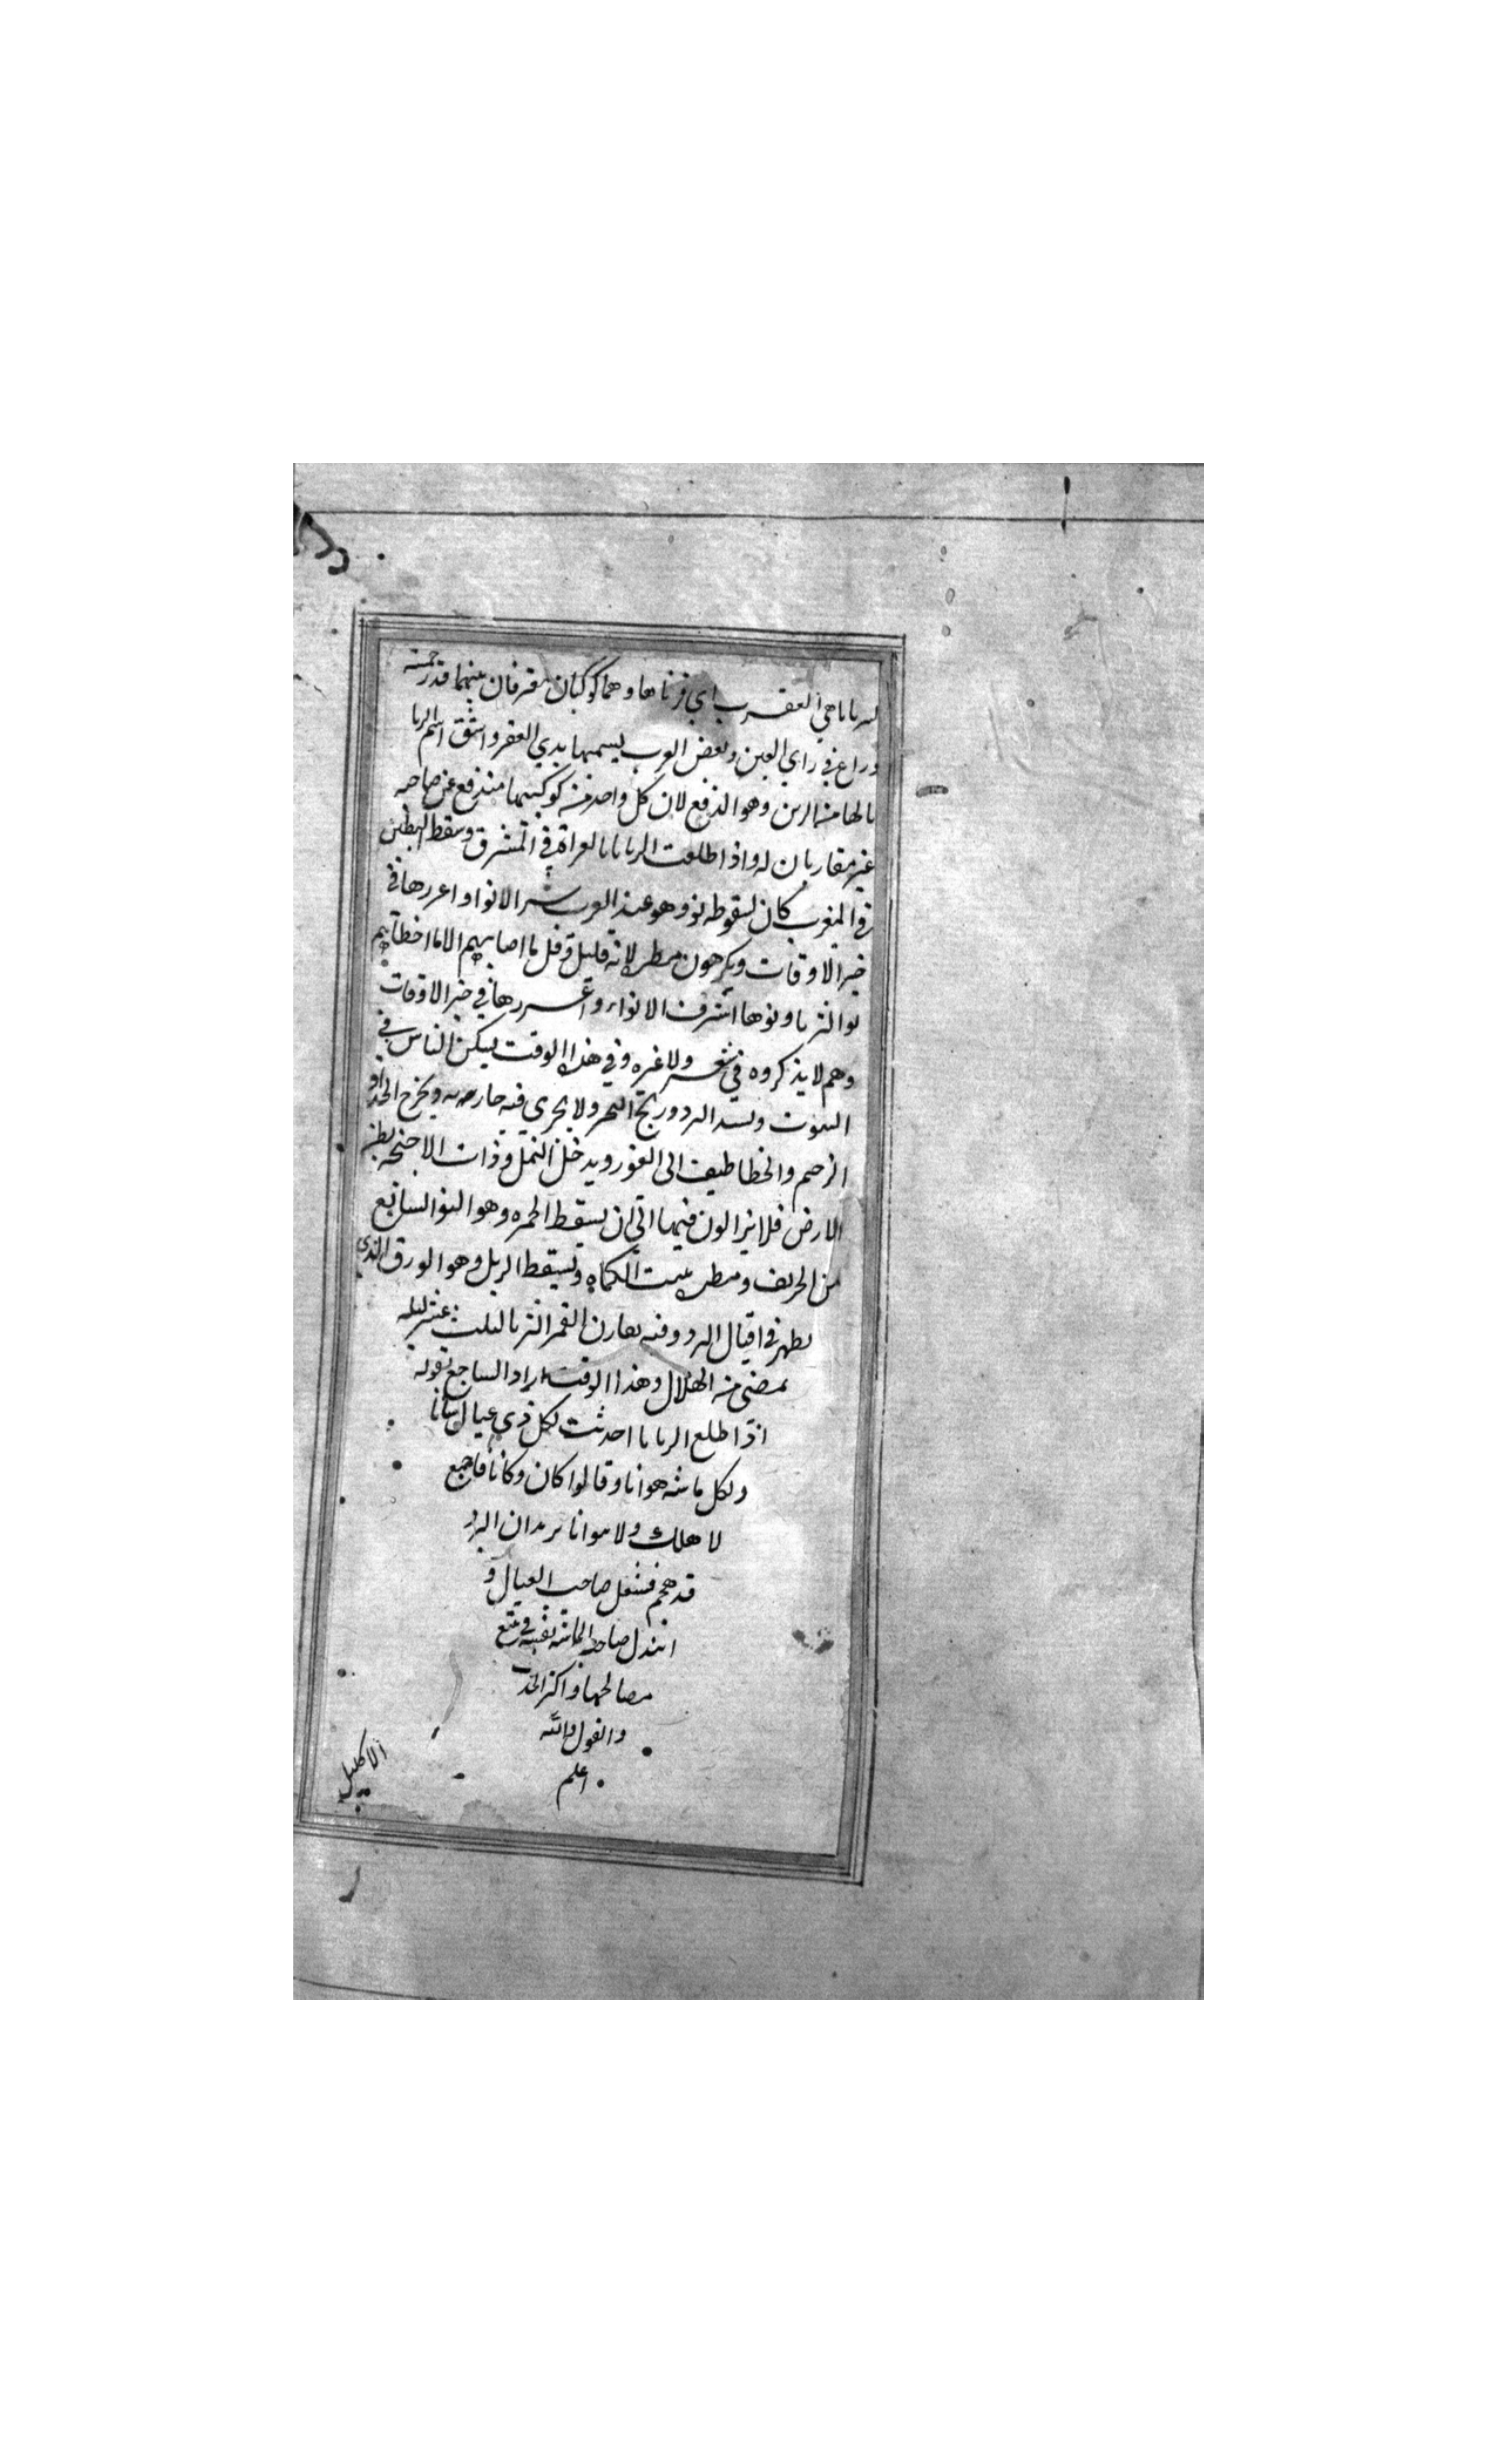 الزبانا هي العقرب اي قرناها وهما كوكبان مفترقان بينهما قدر خمسة
دراع في راي العين وبعض العرب يسميها يدي العقرب واشتق اسم الزبا
نا لها من الزبن وهو الدفع لان كل واحد من كوكبيها مندفع عن صاحبه
غير مقاربا له واذا طلعت الزبانا بالغداة في المشرق وسقط البطين
في المغرب كان لسقوطه نو وهو عند العرب شر الانوا و اعزرها في
خير الاوقات ويكرهون مطره لانه قليل وقل ما اصابهم الا ما اخطاهم
نو الثريا ونوها اشرف الانواء و اغزرها في خير الاوقات
وهم لا يذكروه في شعر ولا غيره وفي هذا الوقت يسكن الناس في
البيوت ويشتد البرد ويرتج البحر ولا يجري فيه جاريه ويخرج الحدا و
الرخم والخطاطيف الى الغور ويدخل النمل وذات الاجنحه بطن
الارض فلا يزالون فيها الى ان يسقط الجبهه وهو النو السابع
من الخريف ومطره ينبت الكماه ويسقط الربل وهو الورق الذي
يظهر في اقبال البرد وفيه يقارن القمر الثريا لثلث عشر ليله
تمضى من الهلال وهذا الوقت اراد الساجع بقوله
اذا طلع الزبانا احدثت لكل ذي عيال شانا
ولكل ماشيه هوانا وقالوا كان وكانا فاجمع
لاهلك ولا توانا يريد ان البرد
قد هجم فشغل صاحب العيال و
ابتذل صاحب الماشيه نفسه في تتبع
مصالحها واكثر الحديث
والقول والله
اعلم
الاكليل